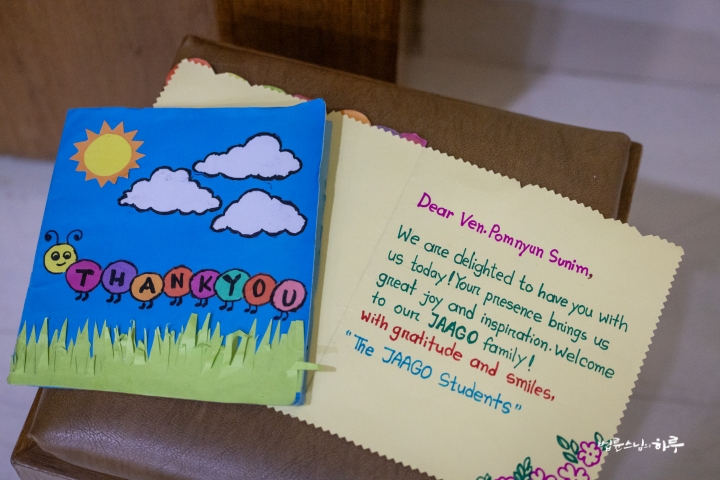 THANKYOU
Dear Ven. Pomnyun Sunim,
We are delighted to have you with
us today! Your presence brings us
great joy and inspiration. Welcome
to our JAAGO family!
with gratitude and smiles,
"The JAAGO Students"
법륜스님의 하루